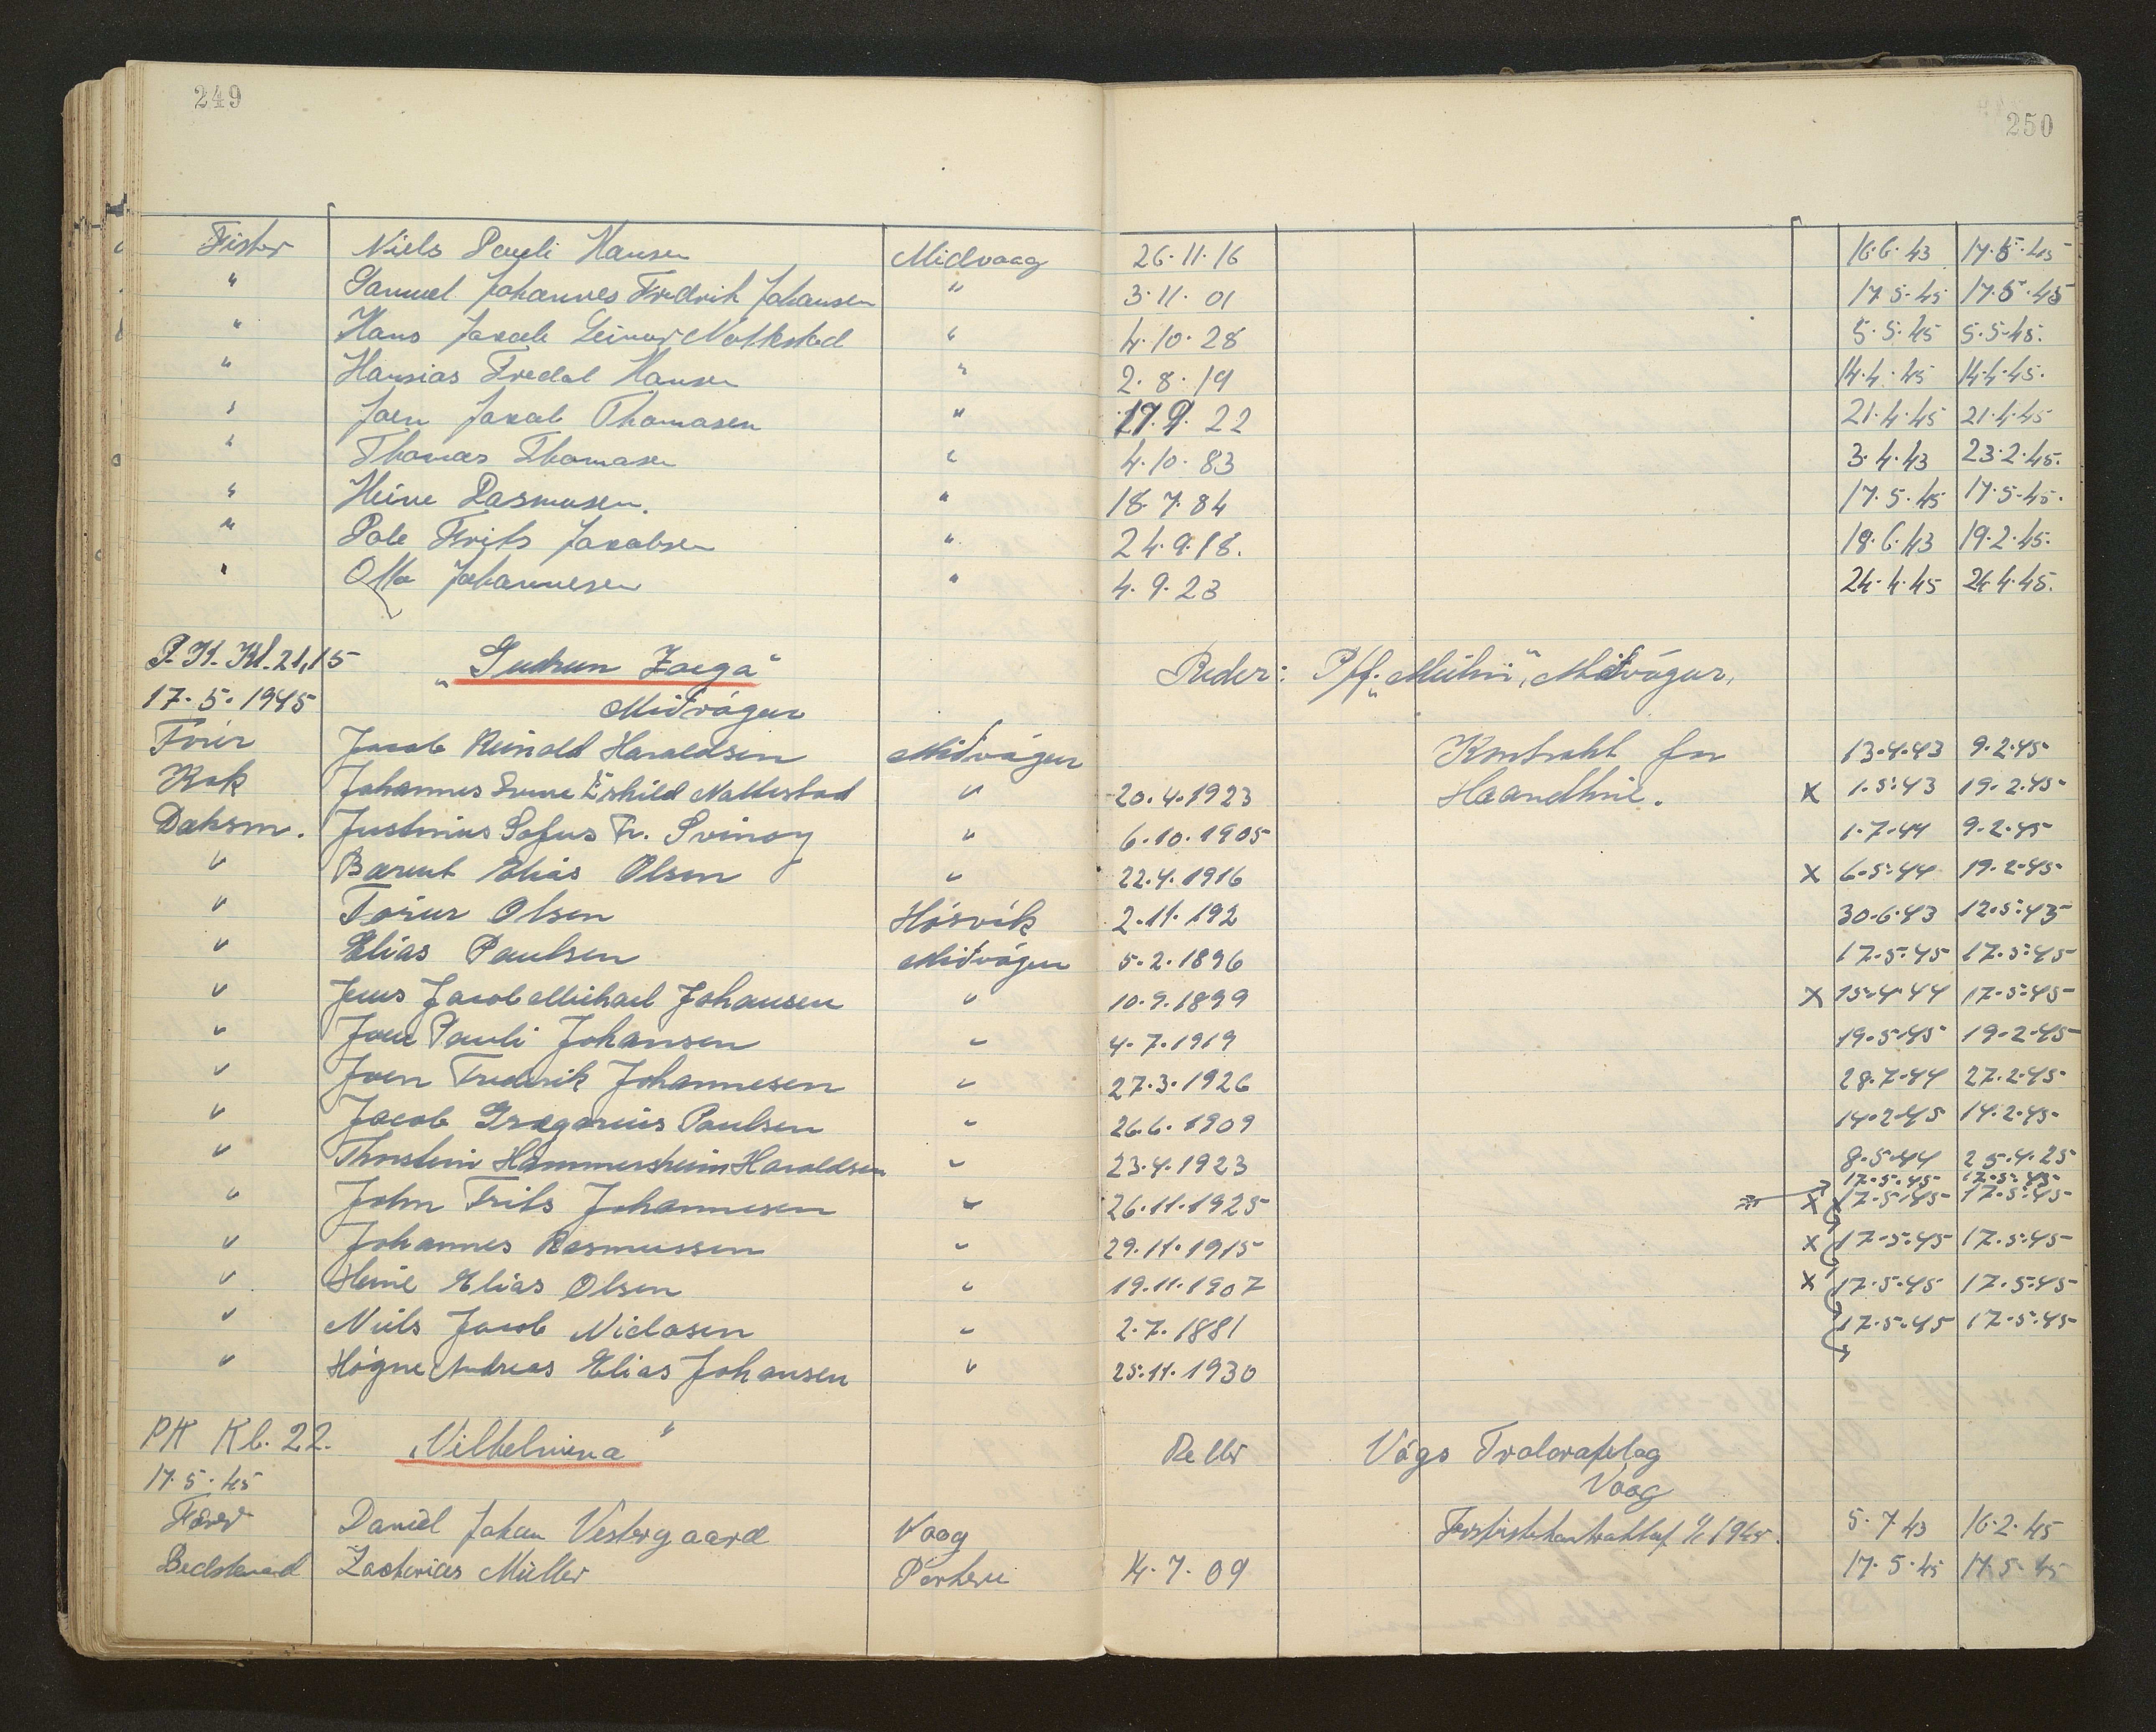 249
250
Fisker Niels Pauli Hansen Midvaag 26.11.16 16.6.43 17.5.45
" Samuel Johannes Fredrik Johansen " 3.11.01 17.5.45 17.5.45
" Hans Jacob Leinar Nattestad " 4.10.28 5.5.45 5.5.45.
" Hansias Fredal Hansen " 2.8.19 14.4.45 14.4.45.
" Joen Jacob Thomasen " 22 21.4.45 21.4.45
" Thomas Thomasen " 4.10.83 3.4.43 23.2.45.
" Heine Rasmusen. " 18.7.84 17.5.45 17.5.45.
" Pole Frits Jacobsen " 24.9.18. 18.6.43 19.2.45.
" Otto Johannesen " 4.9.23 24.4.45 24.4.45.
P.K. Kl. 21,15 „Gudrun Zoega" Reder: P/f. „Midni", Miðvágur,
17.5.1945 Miðvágur
Förer Jacob Reinald Haraldsen Miðvágur Kontrakt for 13.4.43 9.2.45
Kok Johannes Eskild Nattestad " 20.4.1923 Haandline. x 1.5.43 19.2.45
Daksm. Justinus Sofus Fr. Svinoy " 6.10.1905 1.7.44 9.2.45
" Barent Elias Olsen " 22.4.1916 x 6.5.44 19.2.45
" Torier Olsen Hósvík 2.11.192 30.6.43 12.5.43
" Elias Paulsen Miðvágur 5.2.1896 17.5.45 17.5.45
" Jens Jacob Michael Johansen " 10.9.1899 x 15.4.44 17.5.45
" Joen Pauli Johansen " 4.7.1919 19.5.45 19.2.45
" Joen Fredrik Johannesen " 27.3.1926 28.7.44 27.2.45
" Jacob Gregorius Paulsen " 26.6.1909 14.2.45 14.2.45
" Thorstein Hammersheim Haraldsen " 23.4.1923 8.5.44 25.4.25
17.5.45 17.5.45
" John Frits Johannesen " 26.11.1925 x x 17.5.45 17.5.45
" Johannes Rasmussen " 29.11.1915 x 17.5.45 17.5.45
" Heine Elias Olsen " 19.11.1907 x 17.5.45 17.5.45
" Niels Jacob Niclasen " 2.7.1881 17.5.45 17.5.45
" Høgne Andreas Elias Johansen " 25.11.1930
PK Kl. 22. „Vilhelmina" Reder Vágs Trolarafelag
17.5.45 Vaag
Fører Daniel Johan Vestergaard Vaag 1945. 5.7.43 16.2.45
Bedstemand Zacharias Müller Porkeri 14.7.09 17.5.45 17.5.45